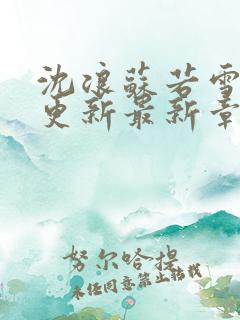 沈浪蘇若雪
更新最新章
努尔哈提
未经同意禁止转载